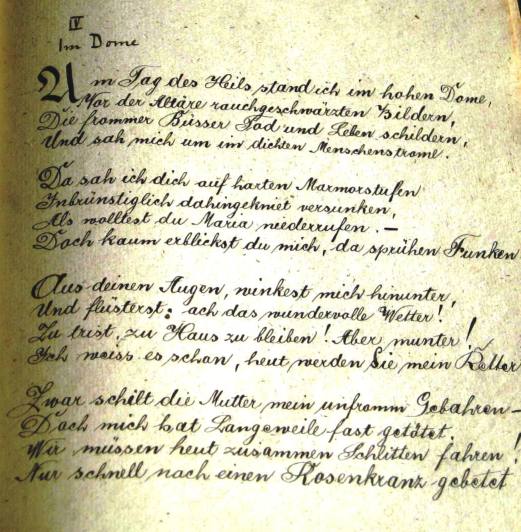 IV
Im Dome
Am Tag des Heils stand ich im hohen Dome,
Vor der Altäre rauchgeschwärzten Bildern,
Die frommer Büsser Tod und Leben schildern,
Und sah mich um im dichten Menschenstrome.
Da sah ich dich auf harten Marmorstufen
Inbrünstiglich dahingekniet versunken,
Als wolltest du Maria niederrufen. —
Doch kaum erblickst du mich, da sprühen Funken
Aus deinen Augen, winkest mich hinunter,
Und flüsterst: ach das wundervolle Wetter!
Zu trist, zu Haus zu bleiben! Aber munter!
Ich weiss es schon, heut werden Sie mein Retter
Zwar schilt die Mutter mein unfromm Gebahren —
Doch mich hat Langeweile fast getötet,
Wir müssen heut zusammen Schlitten fahren!
Nur schnell noch einen Rosenkranz gebetet